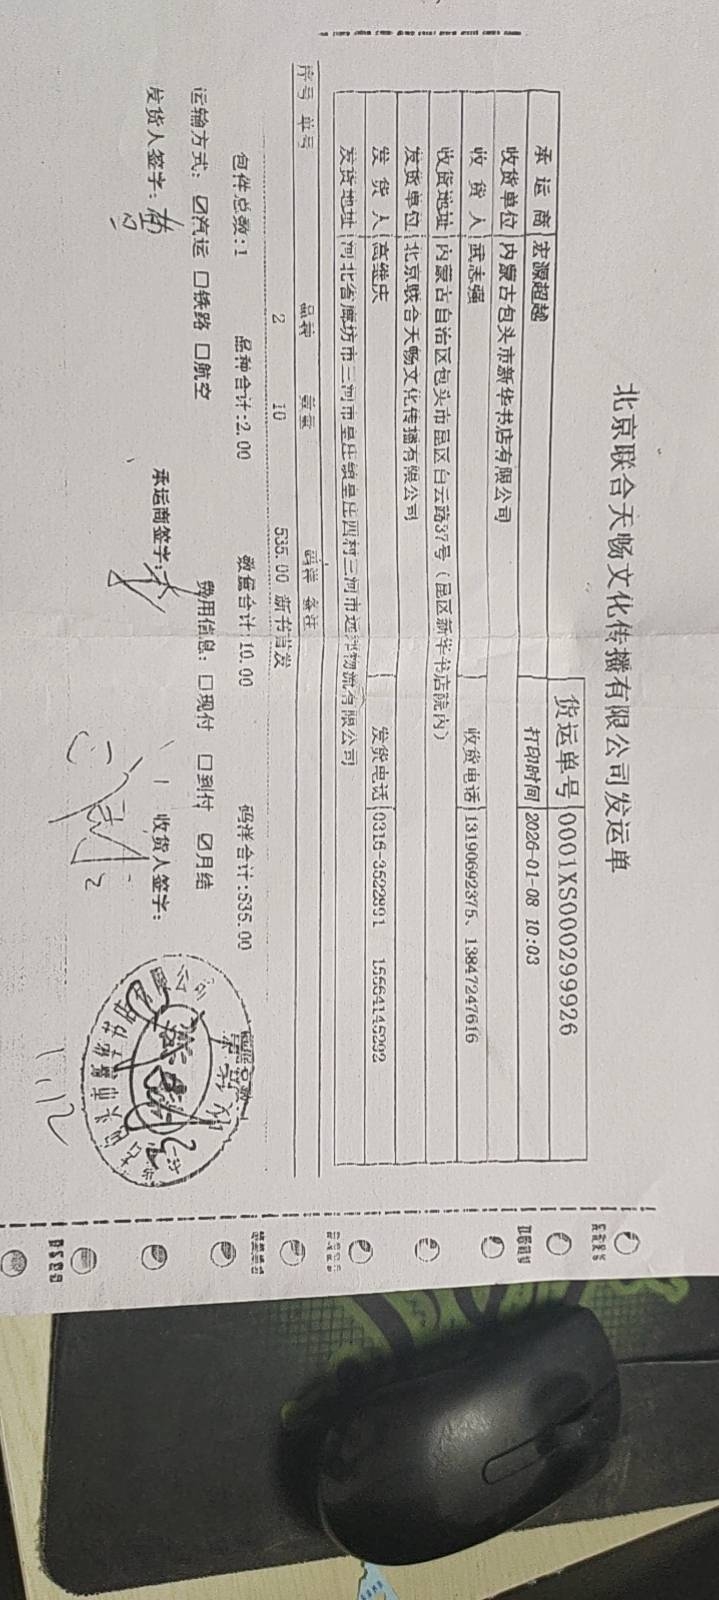 北京联合天畅文化传播有限公司发运单
货运单号 0001XS000299926
承运商 宏源超越 打印时间 2026-01-08 10:03
收货单位 内蒙古包头市新华书店有限公司
收货人 武志强 收货电话 13190692375、13847247616
收货地址 内蒙古自治区包头市昆区白云路37号（昆区新华书店院内）
发货单位 北京联合天畅文化传播有限公司
发货人 高继庆 发货电话 0316-3522891 15564145292
发货地址 河北省廊坊市三河市皇庄镇皇庄四村三河市远洋物流有限公司
序号 单号 品种 数量 码洋 备注
2 10 535.00 新书首发
包件总数:1 品种合计:2.00 数值合计:10.00 码洋合计:535.00
运输方式：☑汽运 □铁路 □航空 费用信息：□现付 □到付 ☑月结
发货人签字： 承运商签字： 收货人签字：
1.12